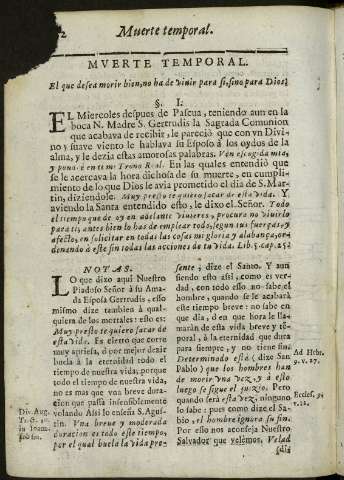 2 Muerte temporal.
MVERTE TEMPORAL.
El que desea morir bien, no ha de viuir para sì, sino para Dios.
§. I.
EL Miercoles despues de Pascua, teniendo aun en la
boca N. Madre S. Gertrudis la Sagrada Comunion
que acabava de recibir, le pareciò que con vn Divi-
no y suave viento le hablava su Esposo á los oydos de la
alma, y le dezia estas amorosas palabras. Ven escogida mia,
y pondrè en ti mi Trono Real. En las quales entendiò que
se le acercava la hora dichosa de su muerte, en cumpli-
miento de lo que Dios le avia prometido el dia de S. Mar-
tin, diziendole. Muy presto te quiero sacar de esta vida. Y
aviendo la Santa entendido esto, le dixo el Señor. Todo
el tiempo que de oy en adelante viuieres, procura no viuirlo
para ti, antes bien lo has de emplear todo, segun sus fuerças, y
afecto, en solicitar en todas las cosas mi gloria y alabança, or-
denando à este fin todas las acciones de tu vida. Lib. 5. cap. 252
NOTAS.
LO que dixo aqui Nuestro
Piadoso Señor á su Ama-
da Esposa Gertrudis, esso
mismo dize tambien à qual-
quiera de los mortales: esto es:
Muy presto te quiero sacar de
esta vida. Es cierto que corre
muy apriesa, ò por mejor dezir
buela à la eternidad todo el
tiempo de nuestra vida; porque
todo el tiempo de nuestra vida,
no es mas que vna breve dura-
cion que passa insensiblemente
volando Assi lo enseña S. Agus-
tin. Vna breve y moderada
duracion es todo este tiempo,
por el qual buela la vida pre-
Div. Aug.
in Ioann.
sente, dize el Santo. Y aun
siendo esto assi, como es verdad,
con todo esso no sabe el
hombre, quando se le acabarà
este tiempo breve: no sabe en
que dia, ò en que hora le lla-
marán de esta vida breve y té-
poral, à la eternidad que dura
para siempre, y no tiene fin.
Determinado está (dize San
Pablo) que los hombres han
de morir vna vez, y à esto
luego se sigue el juizio. Pero
quando será esta vez, ninguno
lo sabe: pues como dize el Sa-
bio, el hombre ignora su fin.
Por esso nos aconseja Nuestro
Salvador que velémos, Velad
Ad Hebr.
9. v. 27.
Eccles. 9.
v. 12.